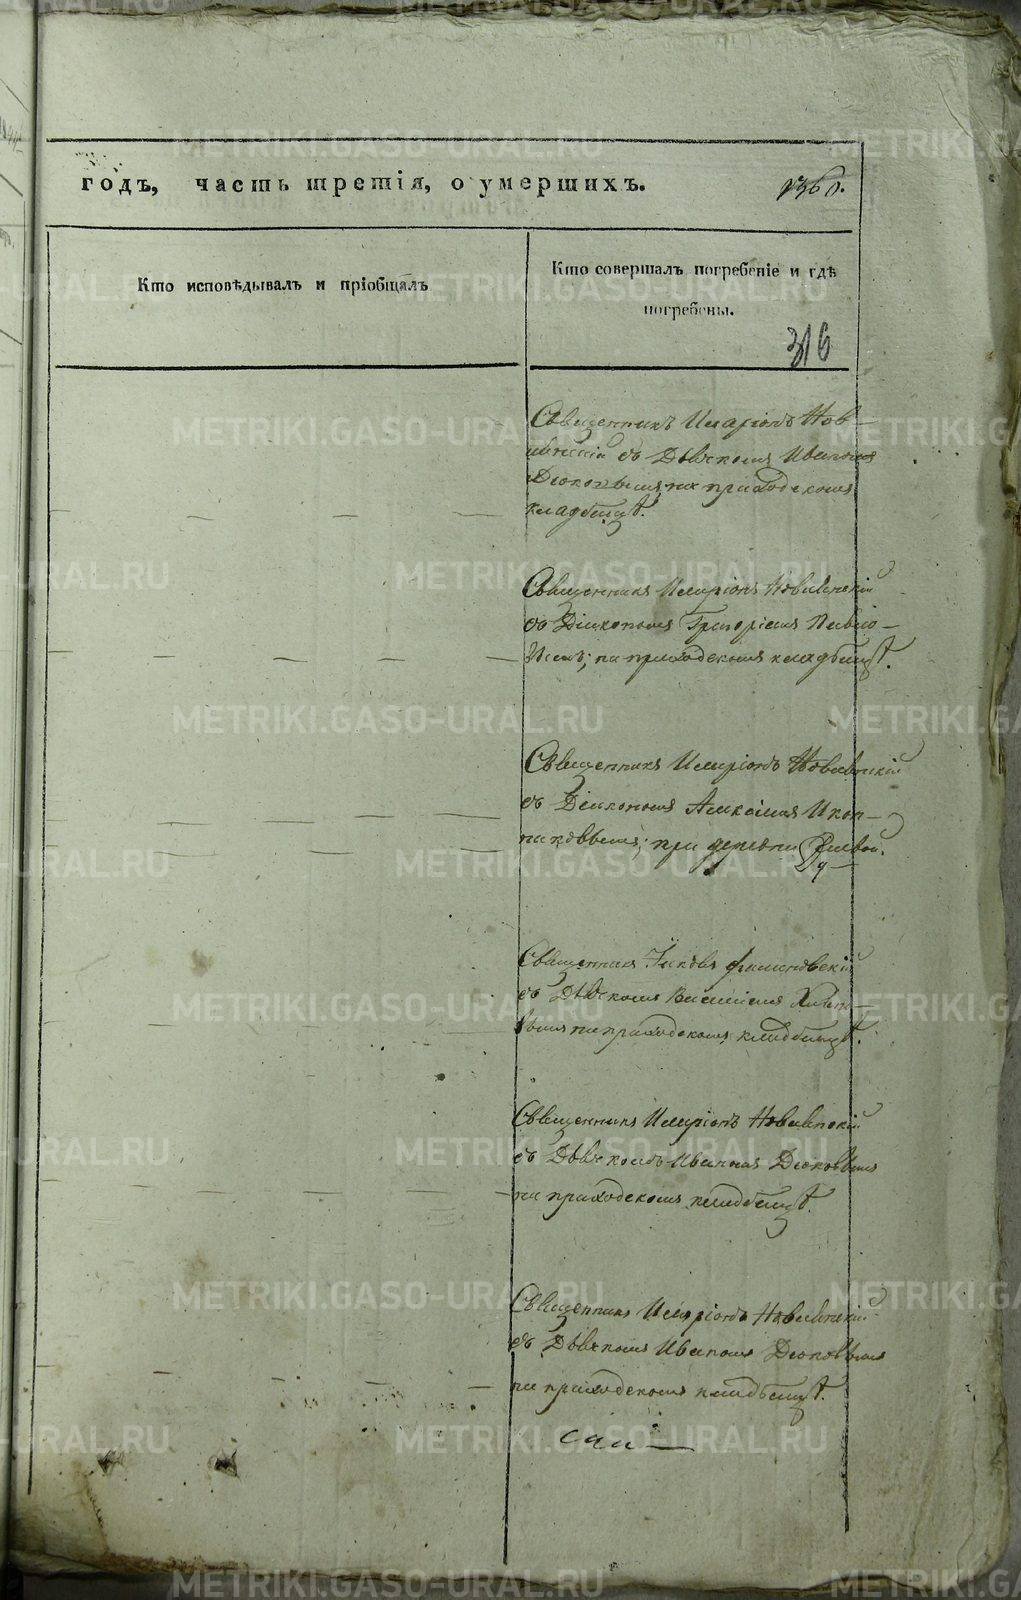 годъ, часть третія, о умершихъ.
1360.
Кто исповѣдывалъ и пріобщалъ
Кто совершалъ погребеніе и гдѣ
погребены.
316
Священникъ Иларіонъ Нов-
съ Дьячкомъ Иваномъ
на приходскомъ
кладбищѣ.
Священникъ Иларіонъ
съ Діакономъ Григоріемъ
на приходскомъ кладбищѣ.
Священникъ Иларіонъ
съ Діакономъ Алексіемъ Икон-
никовымъ; при деревни
Священникъ Іаковъ
съ Дьячкомъ Василіемъ
на приходскомъ кладбищѣ.
Священникъ Иларіонъ
съ Дьячкомъ Иваномъ
на приходскомъ кладбищѣ.
Священникъ Иларіонъ
съ Дьячкомъ Иваномъ
на приходскомъ кладбищѣ.
METRIKI.GASO-URAL.RU